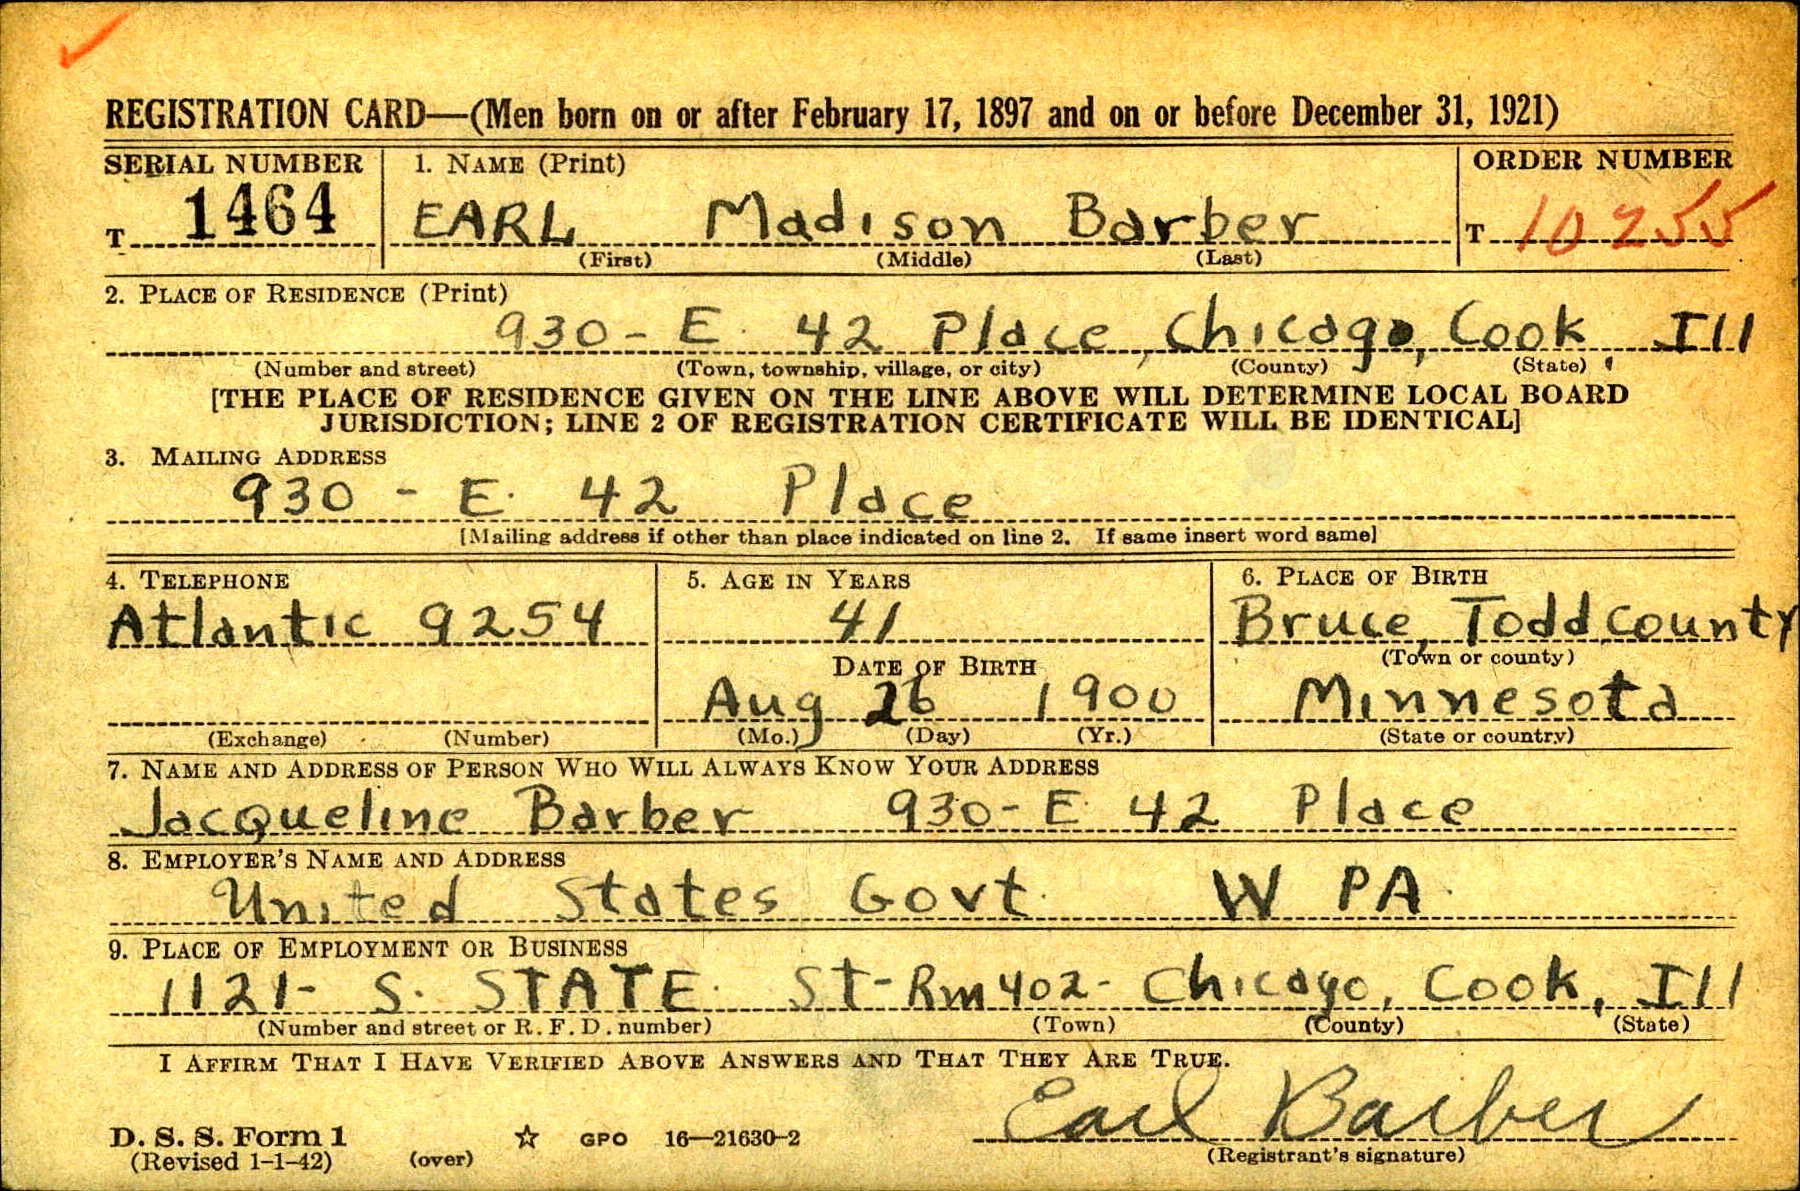 REGISTRATION CARD—(Men born on or after February 17, 1897 and on or before December 31, 1921)
SERIAL NUMBER 1. NAME (Print) ORDER NUMBER
T 1464 EARL Madison Barber T 10255
(First) (Middle) (Last)
2. PLACE OF RESIDENCE (Print)
930 - E. 42 Place, Chicago, Cook Ill
(Number and street) (Town, township, village, or city) (County) (State)
[THE PLACE OF RESIDENCE GIVEN ON THE LINE ABOVE WILL DETERMINE LOCAL BOARD
JURISDICTION; LINE 2 OF REGISTRATION CERTIFICATE WILL BE IDENTICAL]
3. MAILING ADDRESS
930 - E. 42 Place
[Mailing address if other than place indicated on line 2. If same insert word same]
4. TELEPHONE 5. AGE IN YEARS 6. PLACE OF BIRTH
Atlantic 9254 41 Bruce, Todd County
DATE OF BIRTH (Town or county)
Aug 26 1900 Minnesota
(Exchange) (Number) (Mo.) (Day) (Yr.) (State or country)
7. NAME AND ADDRESS OF PERSON WHO WILL ALWAYS KNOW YOUR ADDRESS
Jacqueline Barber 930 - E. 42 Place
8. EMPLOYER'S NAME AND ADDRESS
United States Govt. W PA.
9. PLACE OF EMPLOYMENT OR BUSINESS
1121 - S. STATE. ST - Rm 402 - Chicago, Cook, Ill
(Number and street or R. F. D. number) (Town) (County) (State)
I AFFIRM THAT I HAVE VERIFIED ABOVE ANSWERS AND THAT THEY ARE TRUE.
Earl Barber
D. S. S. Form 1 GPO 16—21630-2
(Revised 1-1-42) (over) (Registrant's signature)